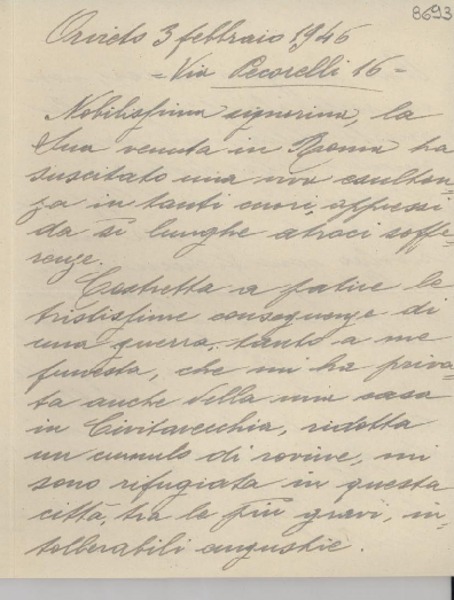 8693
Orvieto 3 febbraio 1946
= Via Pecorelli 16 =
Nobilissima signorina, la
Sua venuta in Roma ha
suscitato una viva esultan=
za in tanti cuori, oppressi
da sì lunghe atroci soffe=
renze.
Costretta a patire le
tristissime conseguenze di
una guerra, tanto a me
funesta, che mi ha priva=
ta anche della mia casa
in Civitavecchia, ridotta
un cumulo di rovine, mi
sono rifugiata in questa
città, tra le più gravi, in=
tollerabili angustie.